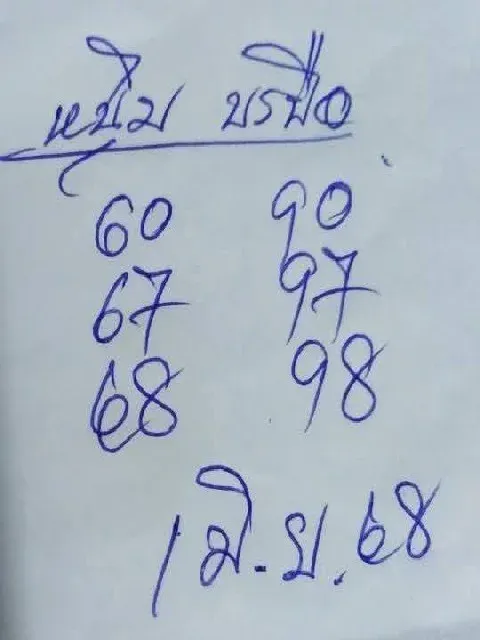 หนุ่ม บรบือ
60 90
67 97
68 98
1 มิ.ย.68